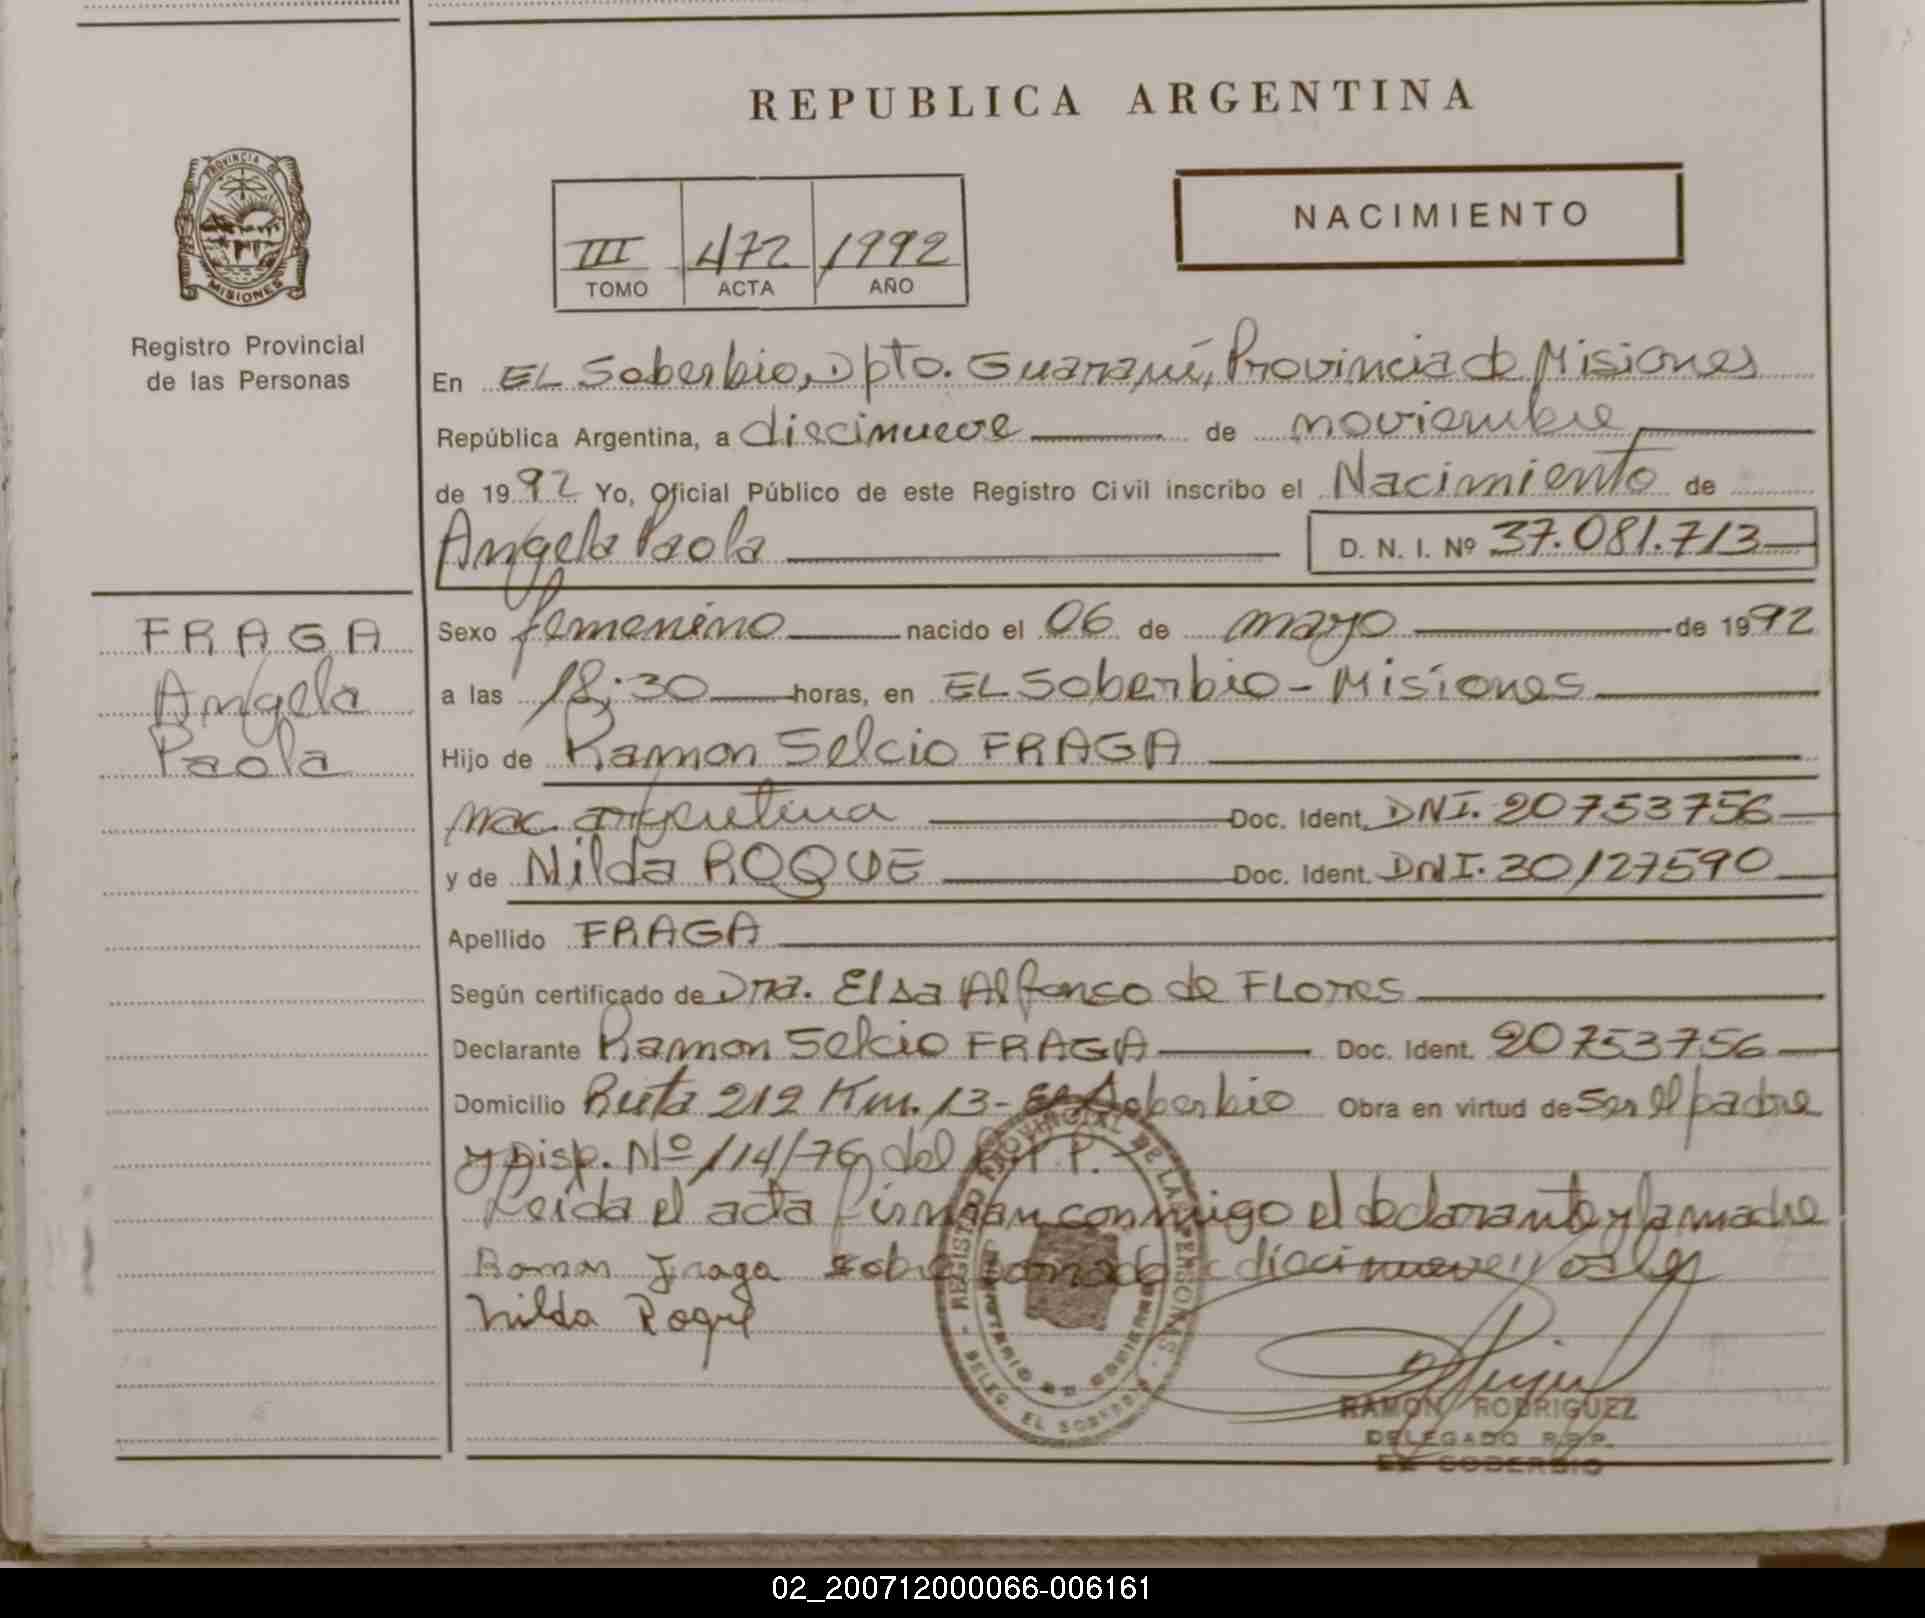 REPUBLICA ARGENTINA
PROVINCIA DE
MISIONES
Registro Provincial
de las Personas
III 472 1992
TOMO ACTA AÑO
NACIMIENTO
En EL Soberbio, Dpto. Guaraní, Provincia de Misiones
República Argentina, a diecinueve de noviembre
de 1992 Yo, Oficial Público de este Registro Civil inscribo el Nacimiento de
Angela Paola D. N. I. Nº 37.081.713
FRAGA
Angela
Paola
Sexo femenino nacido el 06 de mayo de 1992
a las 18:30 horas, en EL Soberbio - Misiones
Hijo de Ramon Selcio FRAGA
nac. argentina Doc. Ident. DNI. 20753756
y de Nilda ROQUE Doc. Ident. DNI. 30127590
Apellido FRAGA
Según certificado de Dra. Elsa Alfonso de FLORES
Declarante Ramon Selcio FRAGA Doc. Ident. 20753756
Domicilio Ruta 212 Km. 13 - El Soberbio Obra en virtud de ser el padre
y Disp. Nº 114/76 del P.
Leida el acta firman conmigo el declarante y la madre
Ramon Fraga sobre diecinueve vale
Nilda Roque
REGISTRO PROVINCIAL DE LAS PERSONAS
DELEG. EL SOBERBIO
RAMON RODRIGUEZ
DELEGADO R.P.P.
EL SOBERBIO
02_200712000066-006161